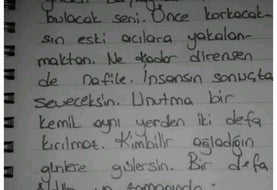 bulacak seni. Önce korkacak-
sın eski acılara yakalan-
maktan. Ne kadar dirensen
de nafile. İnsansın sonuçta
seveceksin. Unutma bir
kemik aynı yerden iki defa
kırılmaz. Kimbilir ağladığın
günlere gülersin. Bir defa